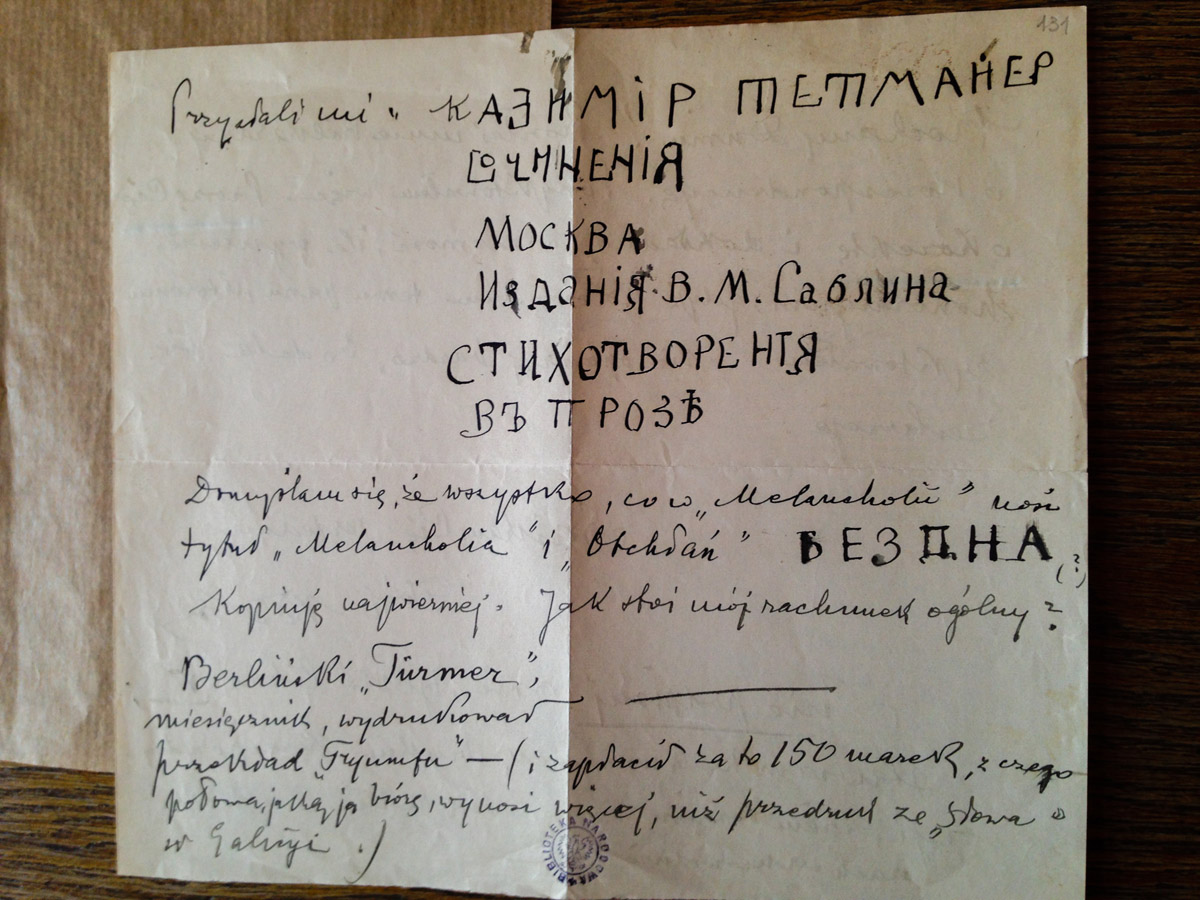 131
Przysłali mi „ КАЗИМІР ТЕТМАЙЕР
СОЧИНЕНІЯ
МОСКВА
Изданія В. М. Саблина
СТИХОТВОРЕНІЯ
ВЪ ПРОЗѢ
Domyślam się, że wszystko, co w „Melancholii” nosi
tytuł „Melancholia” i „Otchłań” БЕЗДНА (?)
Kopiuję najwierniej. Jak stoi mój rachunek ogólny?
Berliński „Türmer”,
miesięcznik, wydrukował
przekład „Tryumfu” — (i zapłacił za to 150 marek, z czego
połowa, jaką ja biorę, wynosi więcej, niż przedruk ze „Słowa”
w Galicyi.)
BIBLIOTEKA NARODOWA